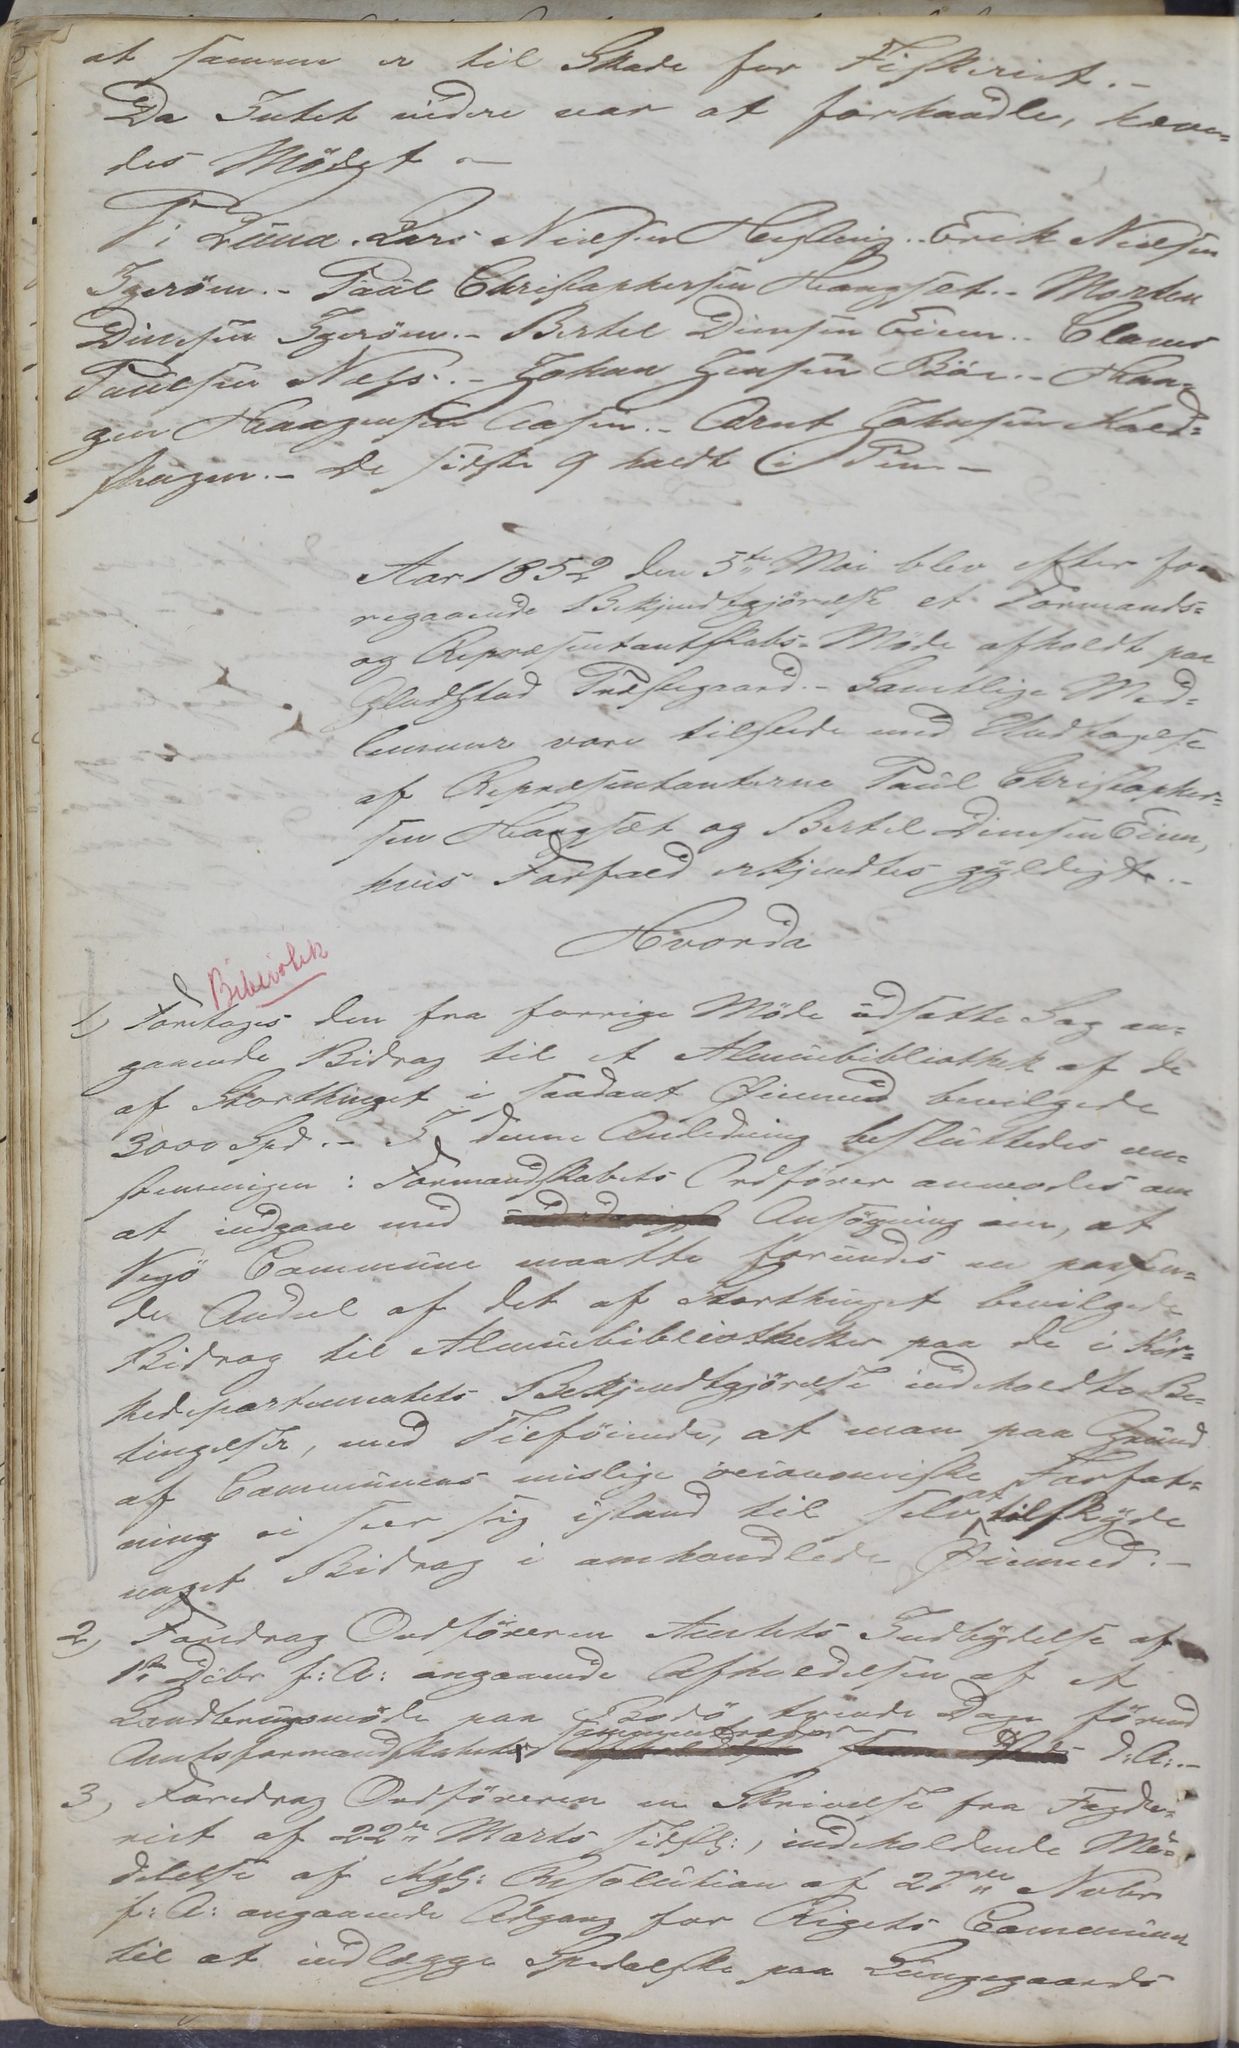 at samme er til Skade for Fiskeriet.-
Da Intet videre var at forhandle, hæve-
des Mödet.-
Lund. Lars Nielsen Erik Nielsen
Igeröen.- Paul Christophersen Haugsæt.- Morten
Dinesen Igeröen.- Bertel Dinesen Eien.- Claus
Paulsen Næss.- Johan Jensen Böe.- Haa-
gen Haagensen Aasen.- Arnt Johnsen Kald-
skagen.- De sidste 9 holdt i Pen-
Aar 1852 den 5te Mai blev efter fo-
regaaende Bekjendtgjörelse et Formands-
og Repræsentantskabs-Möde afholdt paa
Gladstad Præstegaard.- Samtlige Med-
lemmer vare tilstede med Undtagelse
af Repræsentanterne Paul Christopher-
sen Haugsæt og Bertel Dinesen Eien,
hvis Forfald erkjendtes gyldigt.-
Hvorda
Bibliotek
1) Foretoges den fra forrige Möde udsatte Sag an-
gaaende Bidrag til et Almuebibliothek af de
af Storthinget i saadant Øiemed bevilgede
3000 Spd.- I denne Anledning besluttedes een-
stemmigen: Formandskabets Ordförer anmodes om
at indgaae med Ansögning om, at
Vegö Commune maatte forundes en passen-
de Andel af det af Storthinget bevilgede
Bidrag til Almuebibliotheker paa de i Kir-
kedepartementets Bekjendtgjörelse indeholdte Be-
tingelser, med Tilföiende, at man paa Grund
af Communens mislige oeconomiske Forfat-
ning ei seer sig istand til selv at tilskyde
noget Bidrag i omhandlede Øiemed.-
2) Foredrog Ordföreren Amtets Indbydelse af
1ste Debr f: A: angaaende Afholdelsen af et
Landbrugsmöde paa Bodö tvende Dage förend
Amtsformandskabets Sammentræden d: A:.-
3) Foredrog Ordföreren en Skrivelse fra Fogde-
riet af 22de Marts sidstl:, indeholdende Med-
delelse af Kgl: Resolution af 27de Novbr
f: A: angaaende Adgang for Rigets Communer
til at indlægge Spedalske paa Lungegaards